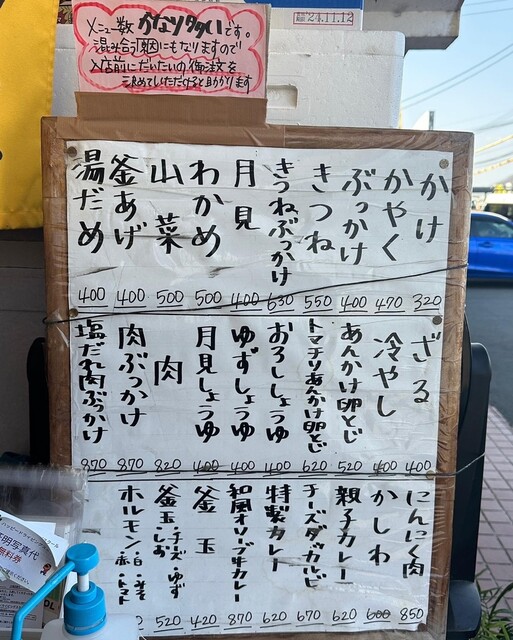 '24.11.12
メニュー数 かなり多いです。
混み合う原因にもなりますので
入店前にだいたいの御注文を
決めていただけると助かります
かけ 320
かやく 470
ぶっかけ 400
きつね 550
きつねぶっかけ 630
月見 400
わかめ 500
山菜 500
釜あげ 400
湯だめ 400
ざる 400
冷やし 400
あんかけ卵とじ 520
トマチリあんかけ卵とじ 620
おろししょうゆ 400
ゆずしょうゆ 400
月見しょうゆ 400
肉 820
肉ぶっかけ 870
塩だれ肉ぶっかけ 870
にんにく肉 850
かしわ 600
親子カレー 620
チーズダッカルビ 670
特製カレー 620
和風オリーブ牛カレー 870
釜玉 420
釜玉・チーズ・ゆず・しお 520
ホルモン・白・辛・赤・トマト
証明写真代
無料券